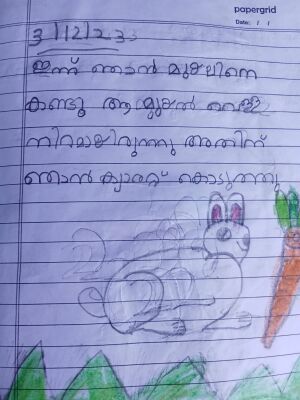 papergrid
Date: / /
3/12/2
ഇന്ന് ഞാൻ മുയലിനെ
കണ്ടു ആ മുയൽ വെള്ള
നിറമായിരുന്നു അതിന്
ഞാൻ ക്യാരറ്റ് കൊടുത്തു